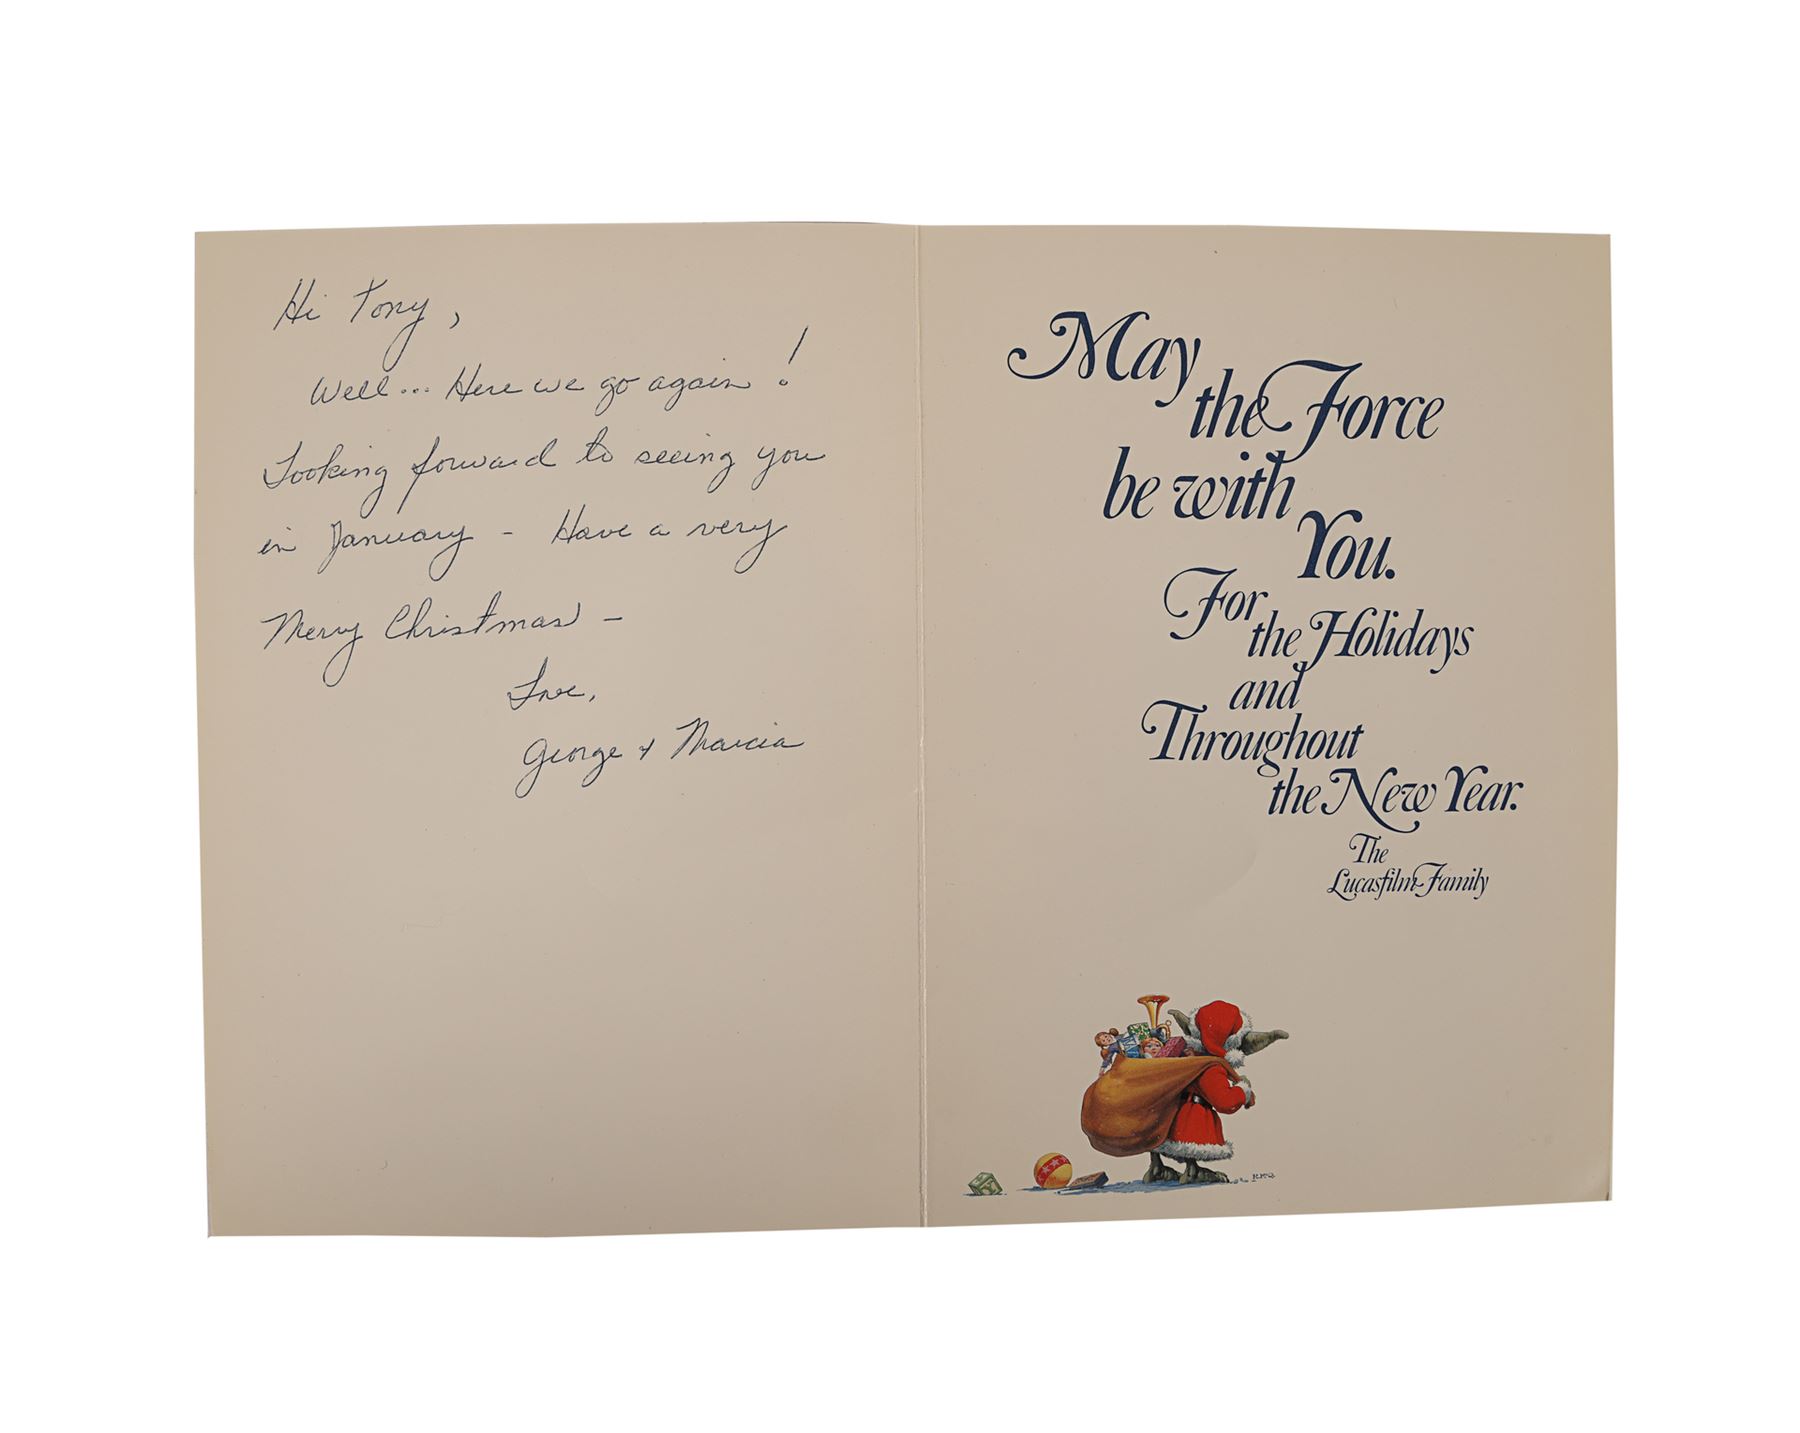 Hi Tony,
Well... Here we go again!
Looking forward to seeing you
in January - Have a very
Merry Christmas -
Love,
George & Marcia
May
the Force
be with
You.
For
the Holidays
and
Throughout
the New Year.
The
Lucasfilm Family